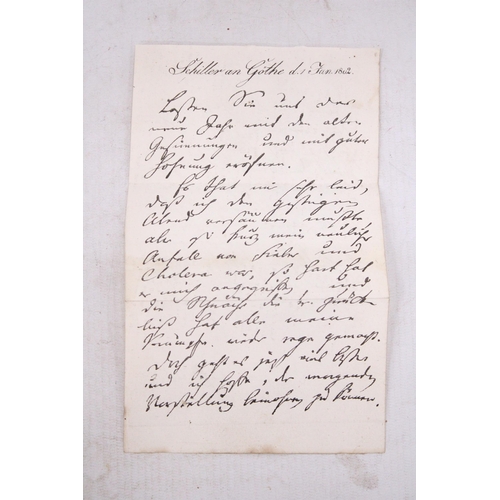 Schiller an Göthe d. 1 Jan. 1802.
Lassen Sie uns das
neue Jahr mit den alten
Gesinnungen und mit guter
Hofnung eröfnen.
Es that mir sehr leid,
daß ich den gestrigen
Abend versäumen mußte,
aber so kurz mein neulicher
Anfall von Fieber und
Cholera war, so hart hat
er mich angegriffen und
die Schwäche die er zurück
ließ hat alle meine
Krämpfe wieder rege gemacht.
Doch geht es jezt viel besser
und ich hoffe, der morgenden
Vorstellung beiwohnen zu können.